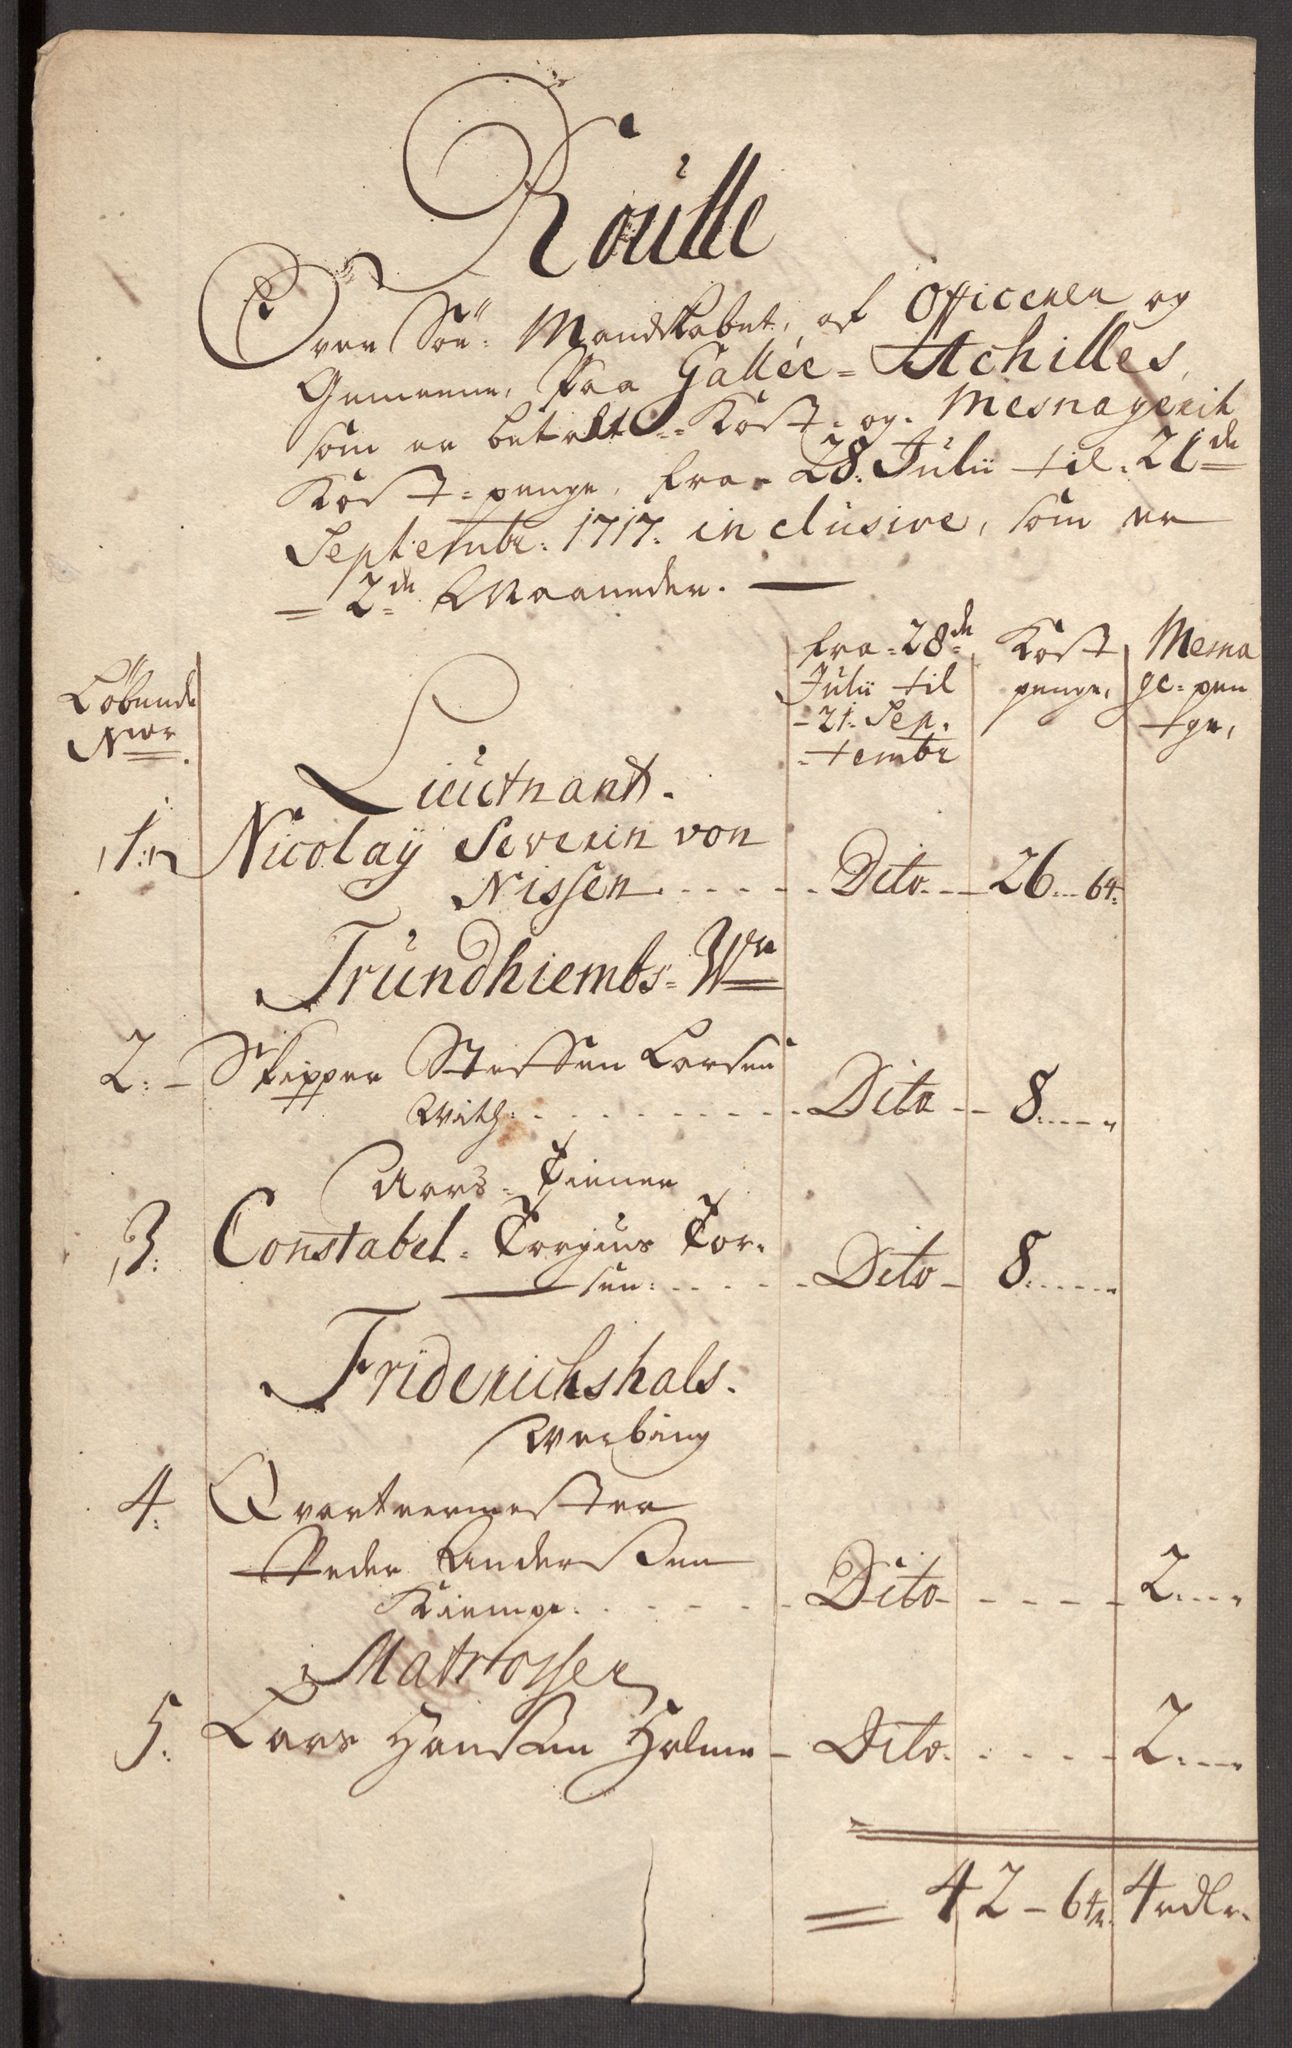 Roülle
Over Söe- Mandskabet, af Officerer og
Gemeene, Paa Gallee- Achilles,
som er betalt Kost- og Mesnagerik
Kost-penge, fra- 28. Julii til 21de
Septembr: 1717. inclusive, som er
2de Maaneder.
Löbende
Nior
fra 28de
Julii til
21. Sep.
tembr
Kost
penge,
Mesna
ge-pen
ge,
Lieutnant.
1. Nicolaÿ Severin von
Nissen. Dito 26 64.
Trundhiembs- Wn
2. Skipper Steffen Larsen
With: Dito 8
Aars- Tiener
3. Constabel- Torgius Tor-
sen: Dito 8
Friderichshals.
Werbing
4. Qvarteermester
Peder Anderssen
Kiempe. Dito 2
Matrosser
5. Lars Hanssen Holme Dito 2
42 - 64. 4 rdlr.